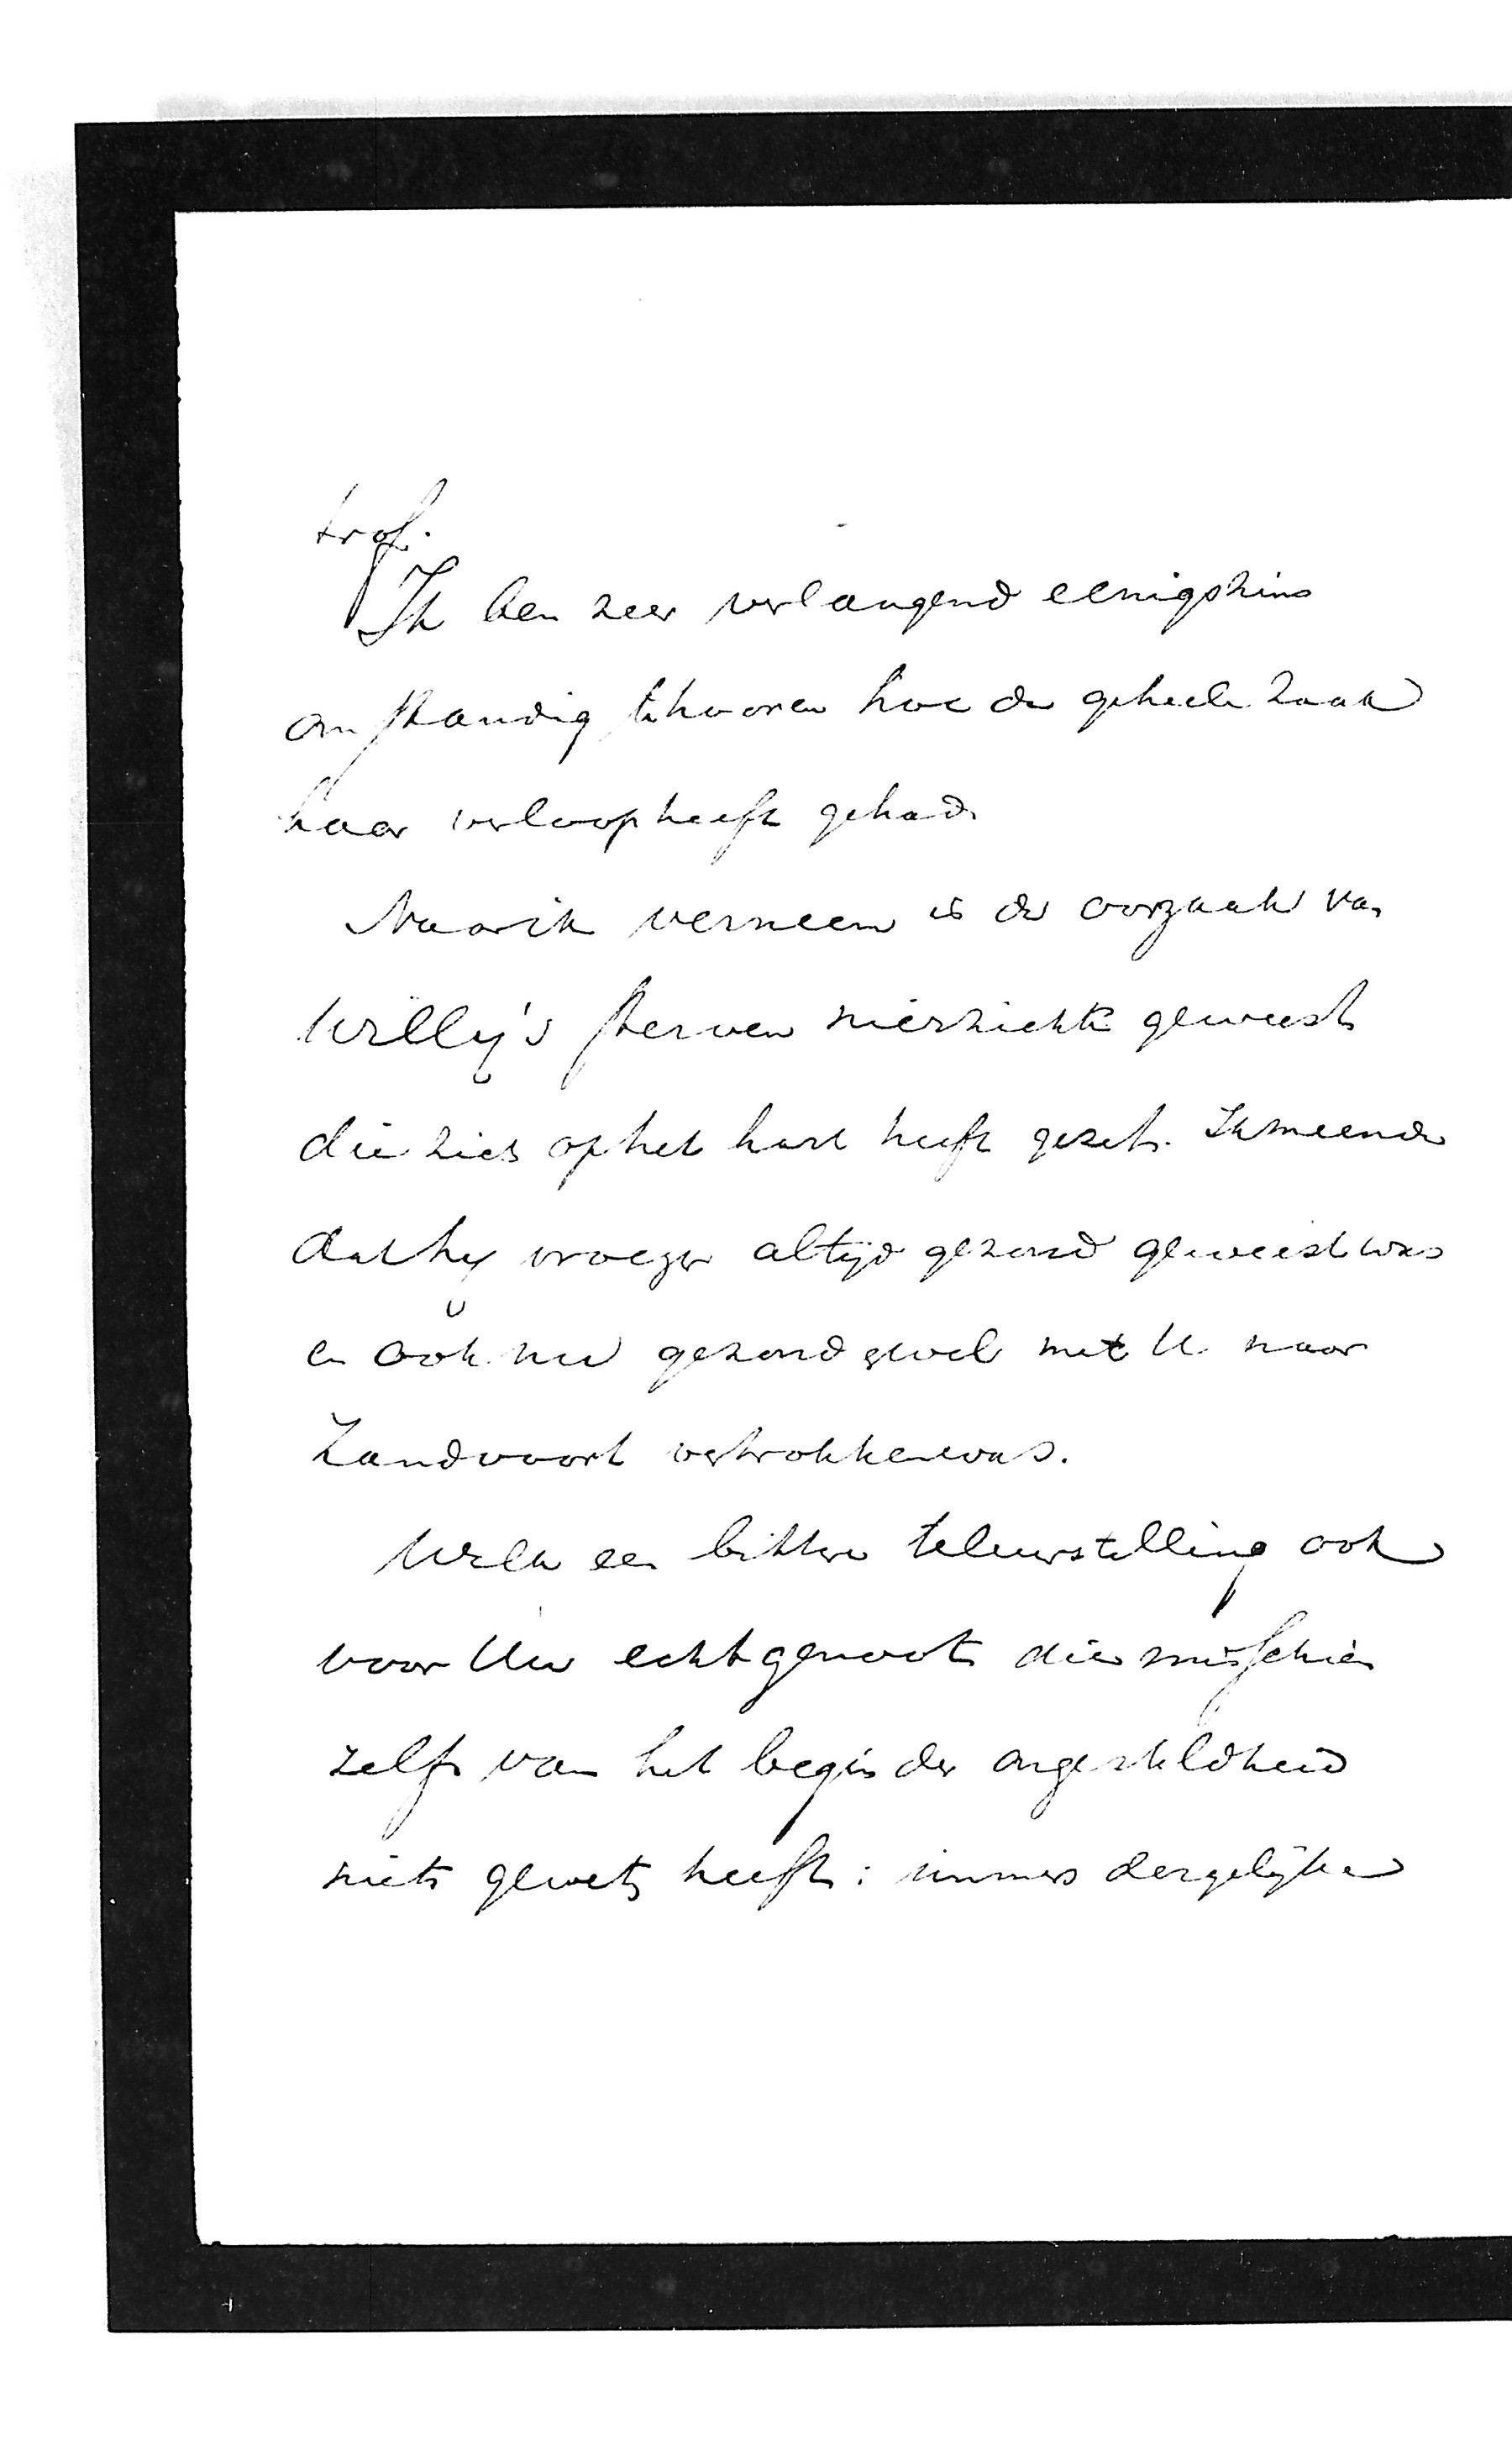 trof.
Ik ben zeer verlangend eenigszins
omstandig te hooren hoe de geheele zaak
haar verloop heeft gehad.
Naar ik verneem is de oorzaak van
Willy's sterven nierziekte geweest
die zich op het hart heeft gezet. Ik meende
dat hij vroeger altijd gezond geweest was
en ook nu gezond & wel met U naar
Zandvoort vertrokken was.
Welk een bittere teleurstelling ook
voor Uw echtgenoot die misschien
zelfs van het begin der ongesteldheid
niets geweten heeft: immers dergelijke